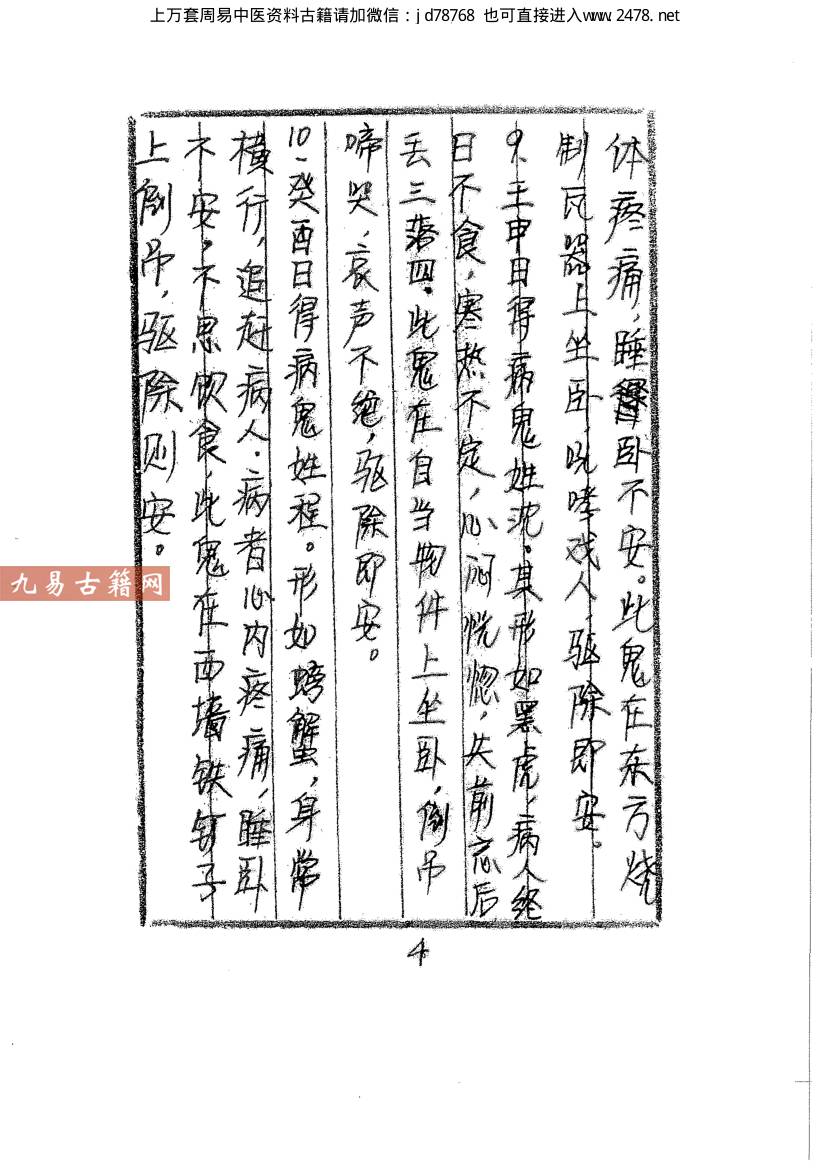 上万套周易中医资料古籍请加微信：jd78768 也可直接进入www.2478.net
体疼痛，睡卧不安。此鬼在东方烧
制瓦器上坐卧，咣哮戏人，驱除即安。
9、壬申日得病鬼姓沈。其形如黑虎，病人终
日不食，寒热不定，心闷恍惚，失前忘后
丢三落四．此鬼在自当物件上坐卧，倒吊
啼哭，哀声不绝，驱除即安。
10、癸酉日得病鬼姓程。形如螃蟹，身常
横行，追赶病人．病者心内疼痛，睡卧
不安，不思饮食，此鬼在西墙铁钉子
上倒吊，驱除则安。
九易古籍网
4